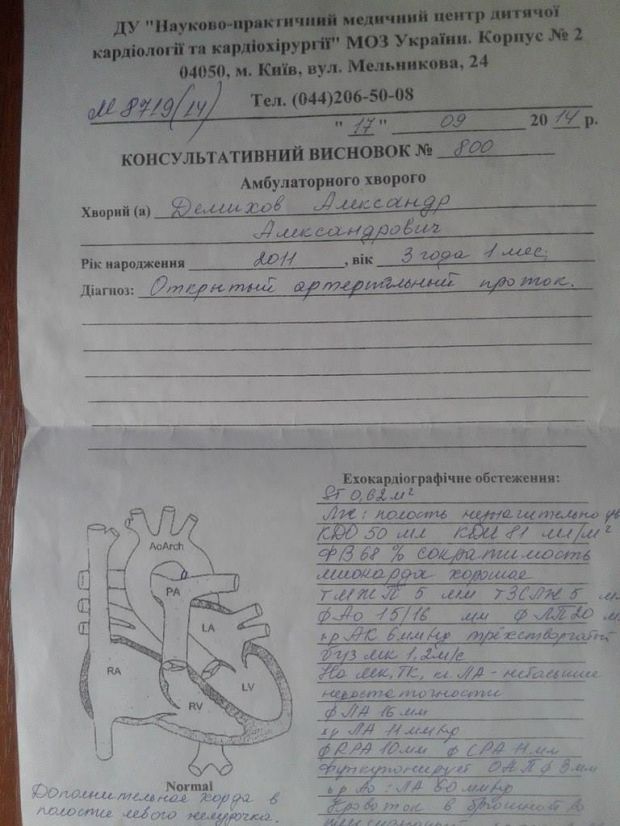 ДУ "Науково-практичний медичний центр дитячої
кардіології та кардіохірургії" МОЗ України. Корпус № 2
04050, м. Київ, вул. Мельникова, 24
Тел. (044)206-50-08
М 8719(14)
" 17 " 09 20 14 р.
КОНСУЛЬТАТИВНИЙ ВИСНОВОК № 800
Амбулаторного хворого
Хворий (а) Демихов Александр
Александрович
Рік народження 2011 , вік 3 года 1 мес.
Діагноз: Открытый артериальный проток.
Ехокардіографічне обстеження:
ST 0,62 м²
ЛЖ: полость незначительно
КДО 50 мл КДИ 81 мл/м²
ФВ 68 % сократимость
миокарда хорошая
ТМЖП 5 мм ТЗСЛЖ 5
ф Ао 15/16 мм ф ЛП 20
гр АК 6 ммHg трёхстворчатый
МК 1,2 м/с
На МК, ТК, кл. ЛА - небольшие
недостаточности
ф ЛА 16 мм
гр ЛА 11 ммHg
ф RPA 10 мм ф LPA 11 мм
Функционирует ОАП ф 3 мм
гр Ао : ЛА 80 ммHg
Кровоток в брюшной Ао
AoArch
PA
LA
RA
LV
RV
Normal
Дополнительная хорда в
полости левого желудочка.